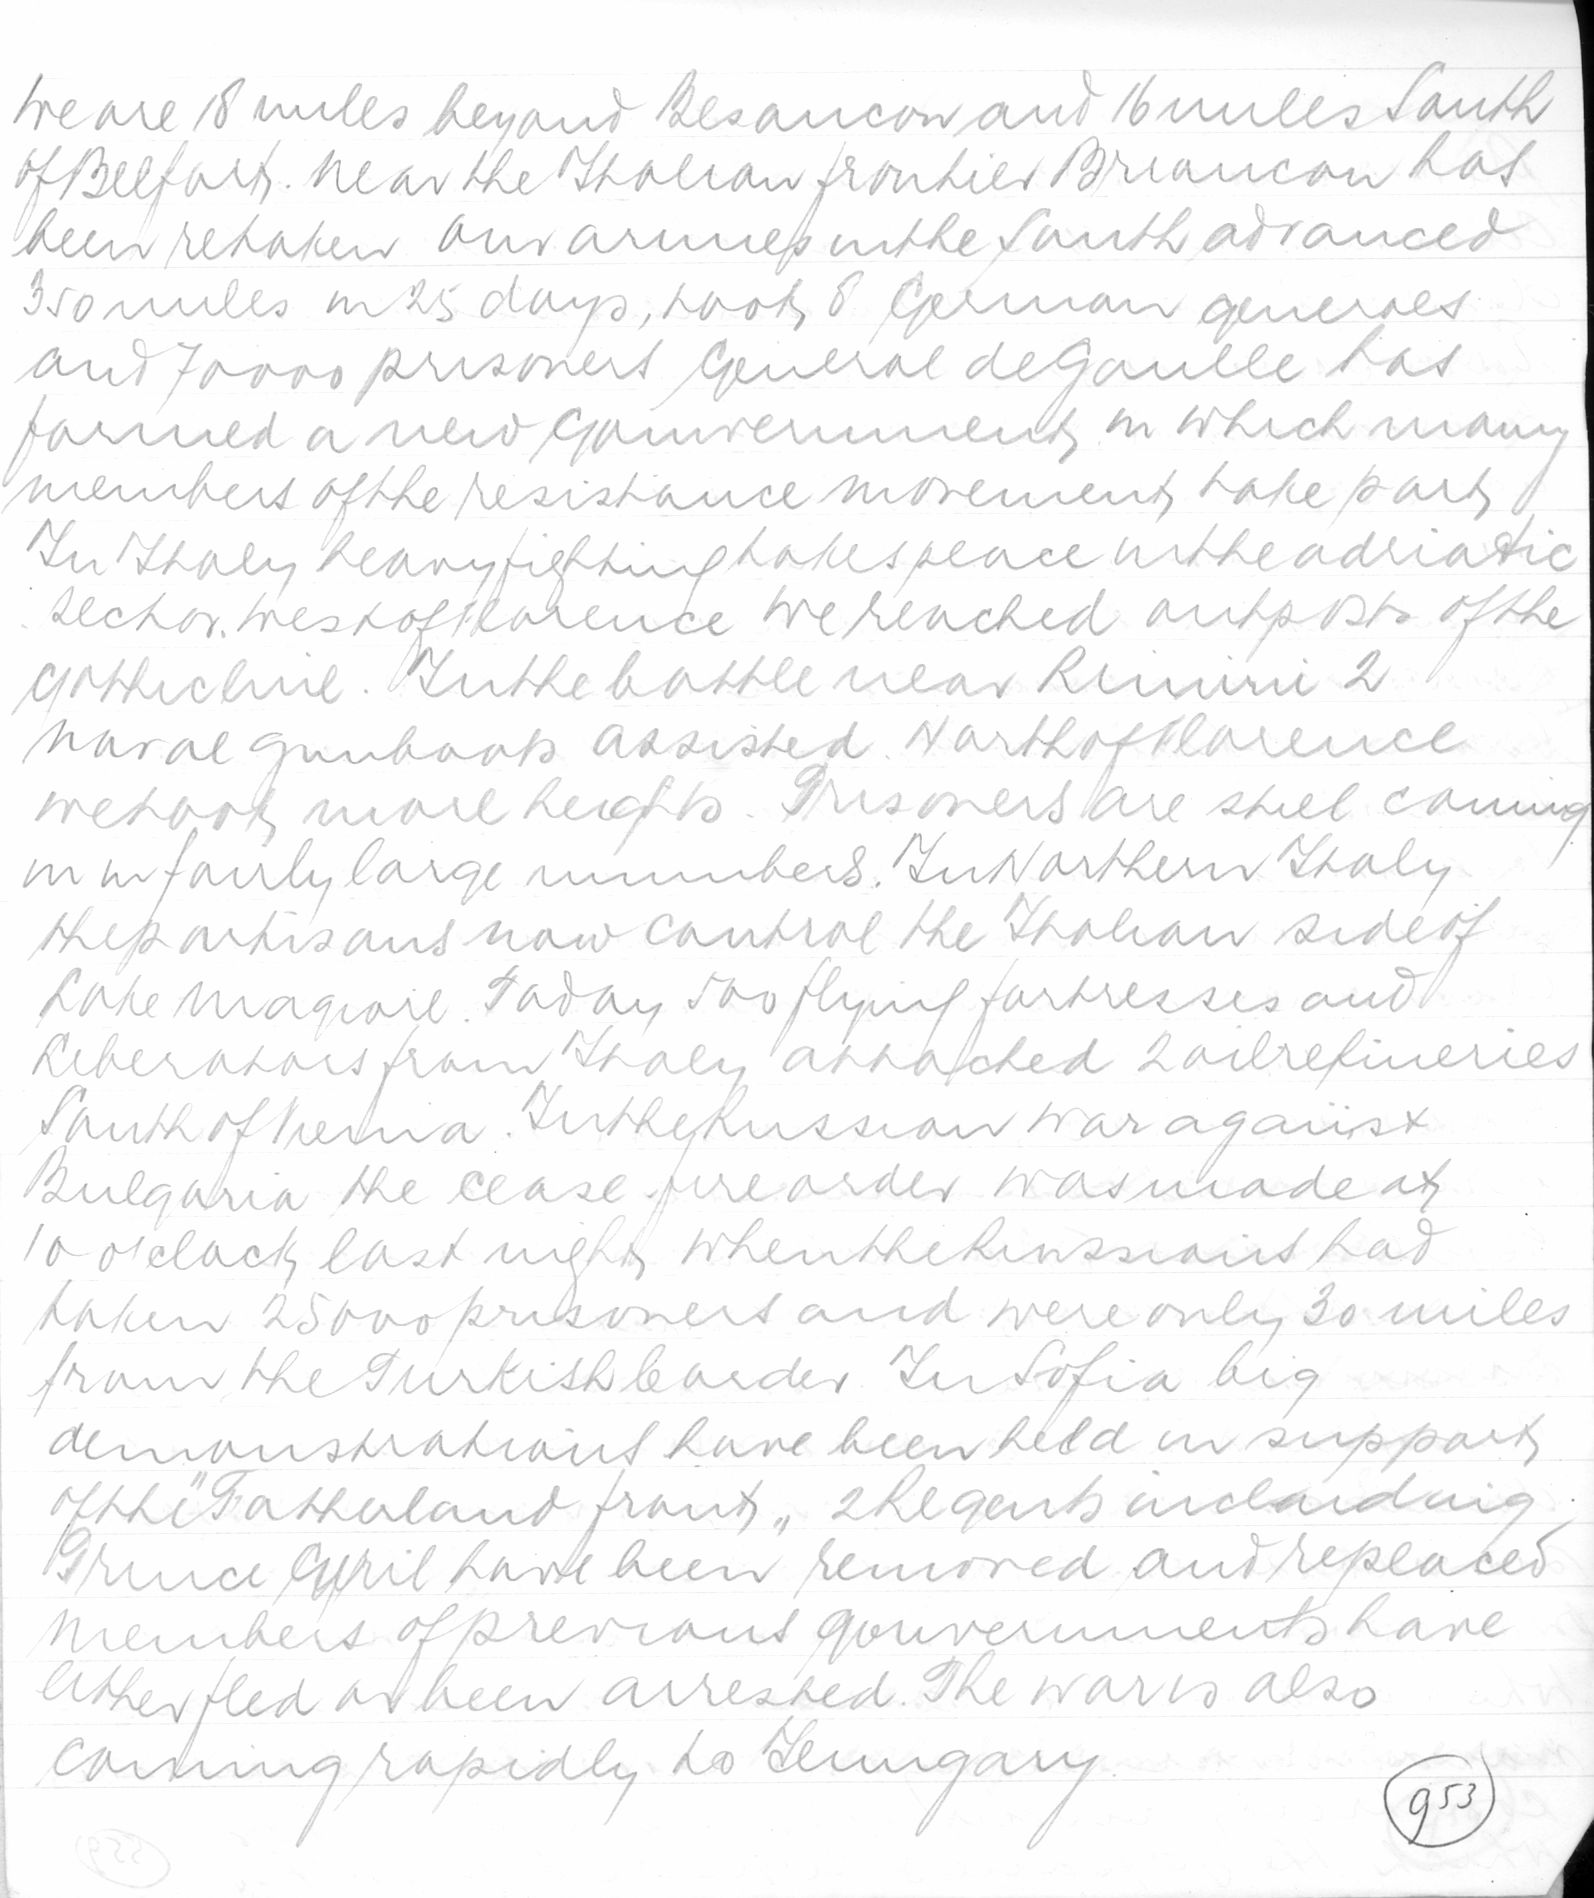 We are 18 miles beyond Besancon and 16 miles South
of Belfort. Near the Italian frontier Briancon has
been retaken our armies in the South advanced
350 miles in 25 days, took 8 German generals
and 70000 prisoners General de Gaulle has
formed a new Gouvernment in which many
members of the resistance movement take part
In Italy heavy fighting takes place in the adriatic
sector. West of Florence we reached outposts of the
gothic line. In the battle near Rimini 2
naval gunboats assisted. North of Florence
we took more heights. Prisoners are still coming
in in fairly large numbers. In Northern Italy
the partisans now control the Italian side of
Lake Magiore. Today 500 flying fortresses and
Liberators from Italy attacked 2 oilrefineries
South of Vienna. In the Russian war against
Bulgaria the cease fire order was made at
10 o'clock last night when the Russians had
taken 25000 prisoners and were only 30 miles
from the Turkish border In Sofia big
demonstrations have been held in support
of the "Fatherland front„ 2 Regents including
Prince Cyril have been removed and replaced
Members of previous gouvernments have
either fled or been arrested. The war is also
coming rapidly to Hungary
953